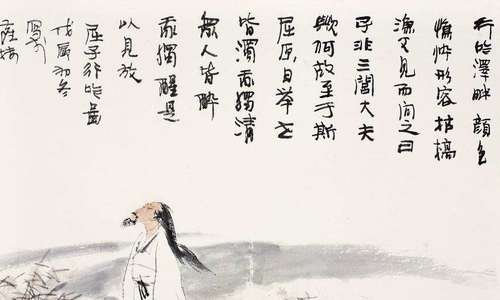 行吟澤畔顏色
憔悴形容枯槁
漁父見而問之曰
子非三閭大夫
歟何故至于斯
屈原曰舉世
皆濁我獨清
眾人皆醉
我獨醒是
以見放
屈子行吟圖
戊辰初冬